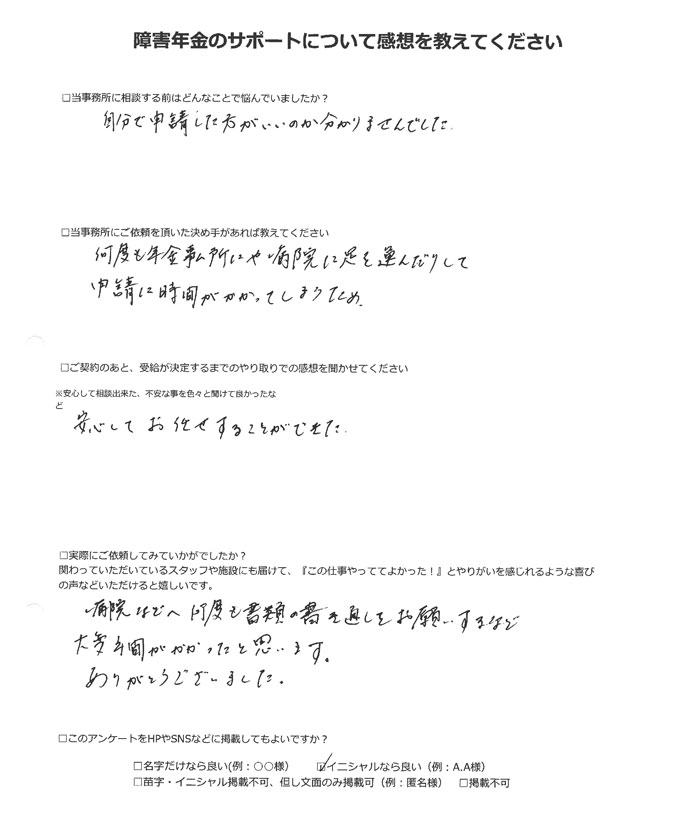 障害年金のサポートについて感想を教えてください
□当事務所に相談する前はどんなことで悩んでいましたか？
自分で申請した方がいいのか分かりませんでした.
□当事務所にご依頼を頂いた決め手があれば教えてください
何度も年金事ム所にや病院に足を運んだりして
申請に時間がかかってしまうため.
□ご契約のあと、受給が決定するまでのやり取りでの感想を聞かせてください
※安心して相談出来た、不安な事を色々と聞けて良かったな
ど
安心してお任せすることができた.
□実際にご依頼してみていかがでしたか？
関わっていただいているスタッフや施設にも届けて、『この仕事やっててよかった！』とやりがいを感じれるような喜び
の声などいただけると嬉しいです。
病院などへ何度も書類の書き直しをお願いするなど
大変手間がかかったと思います。
ありがとうございました。
□このアンケートをHPやSNSなどに掲載してもよいですか？
□名字だけなら良い(例：〇〇様） ☑イニシャルなら良い（例：A.A様）
□苗字・イニシャル掲載不可、但し文面のみ掲載可（例：匿名様） □掲載不可